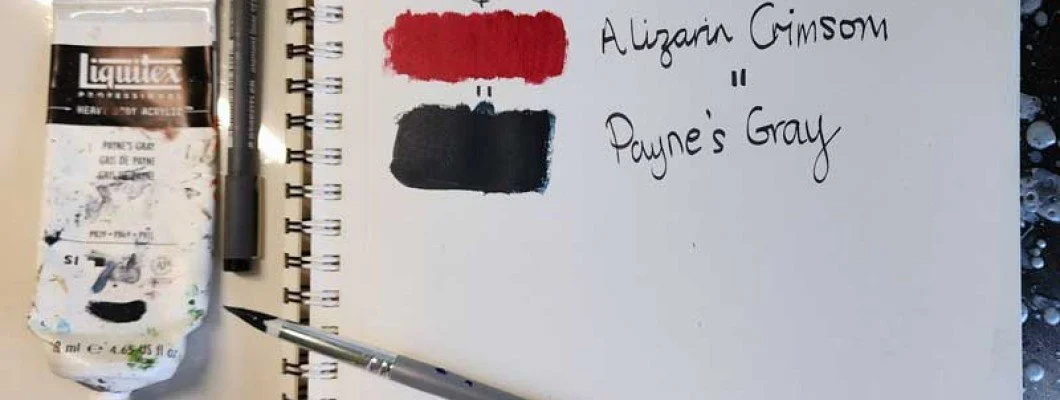 Liquitex
PROFESSIONAL
HEAVY BODY ACRYLIC
PAYNE'S GRAY
GRIS DE PAYNE
S1
ml e 4.65 US fl oz
Alizarin Crimson
=
Payne's Gray